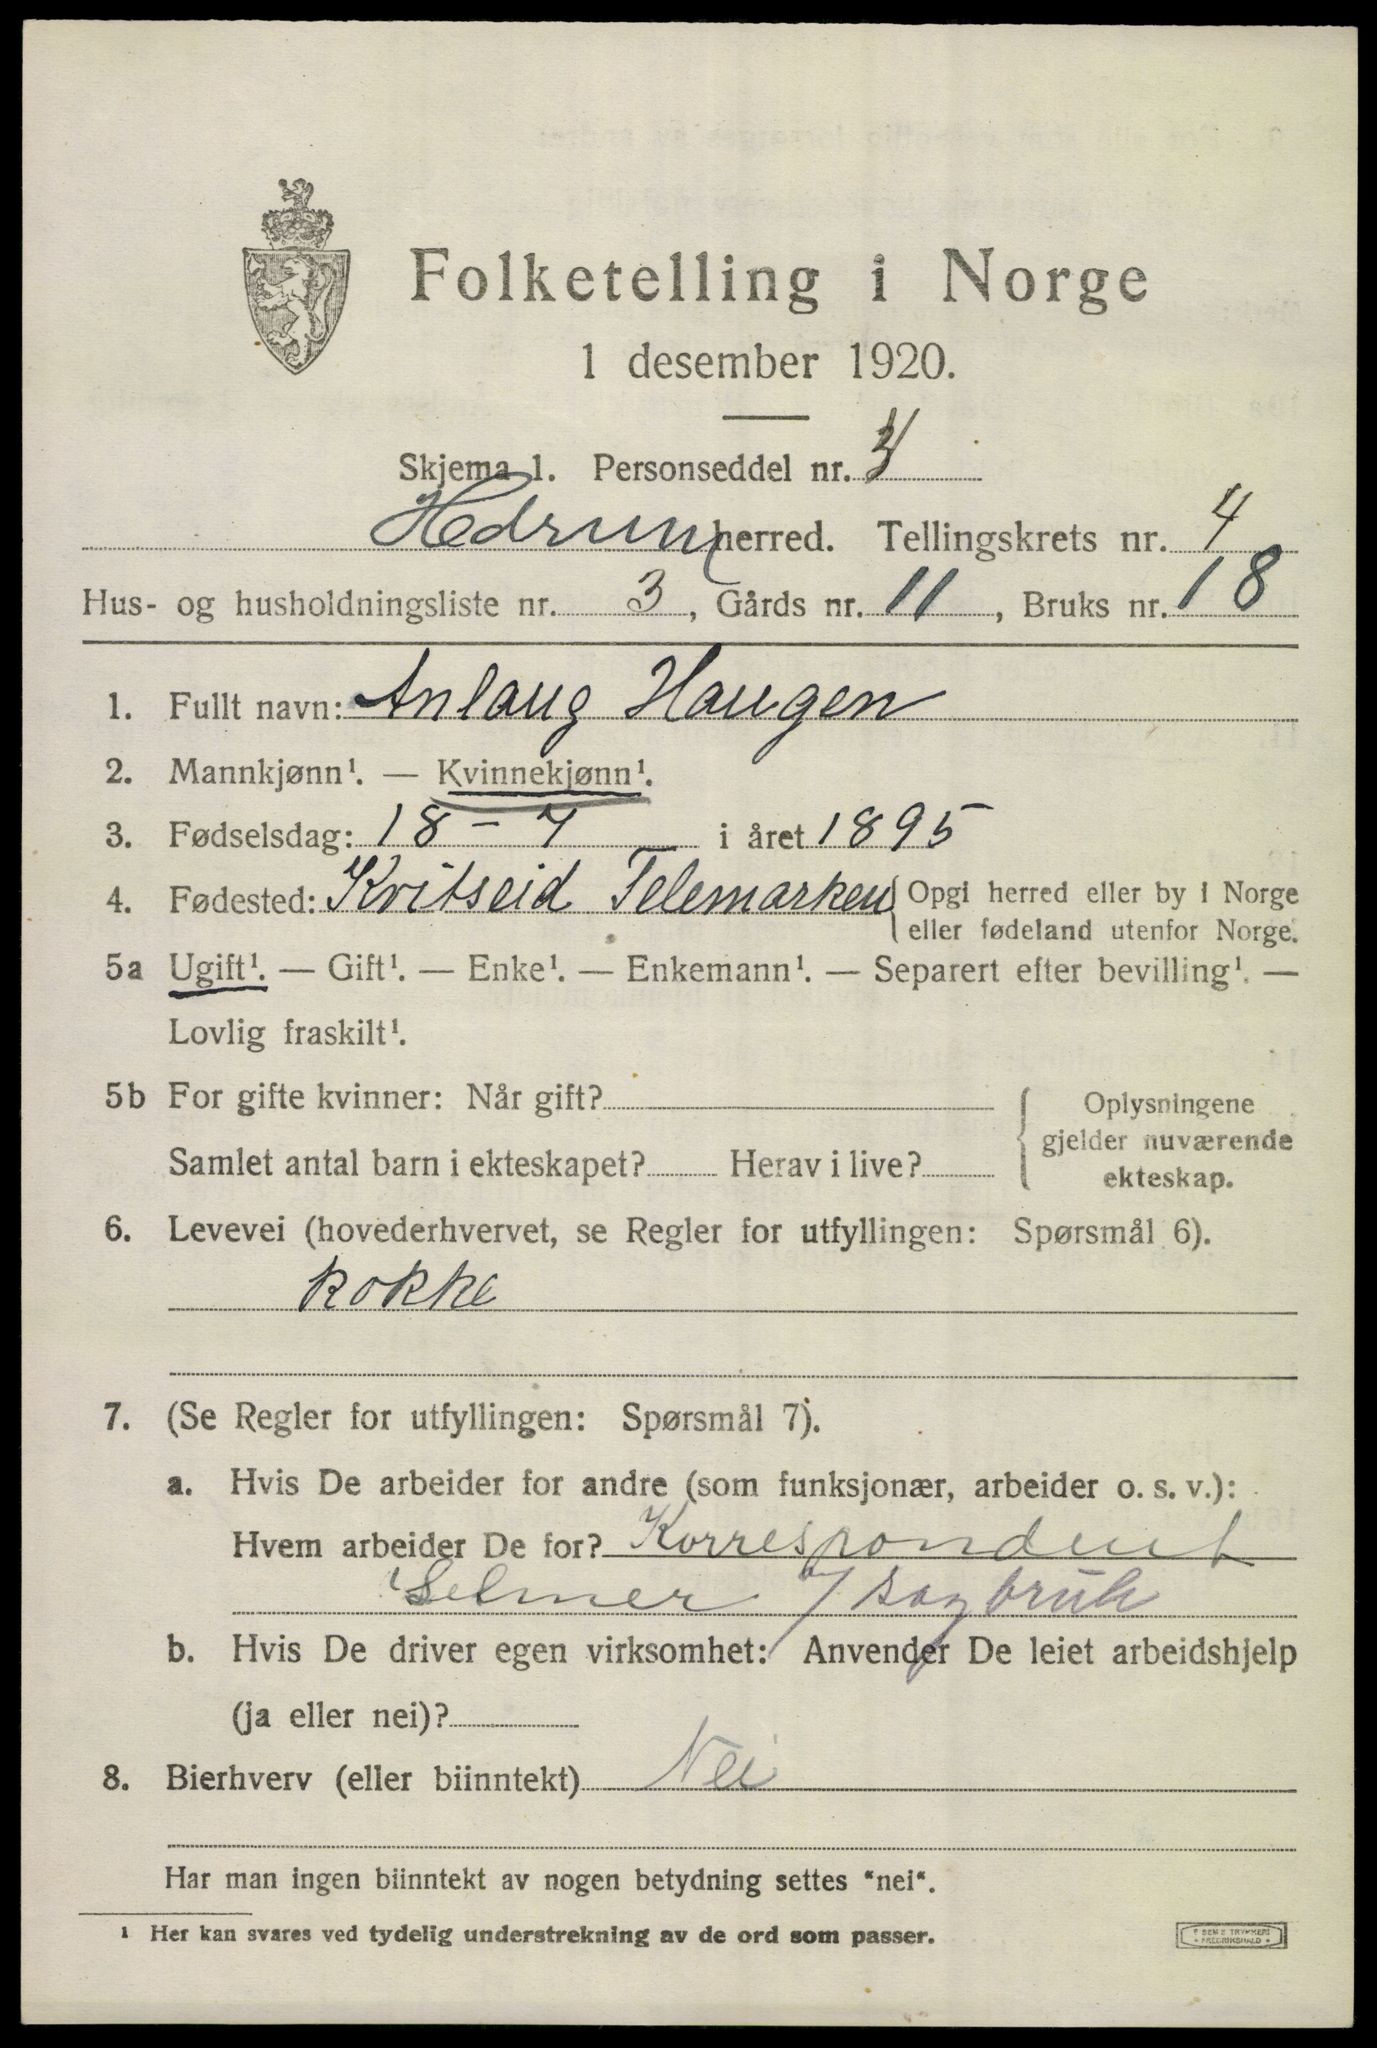 Folketelling i Norge
1 desember 1920.
Skjema 1. Personseddel nr.
Hedrum herred. Tellingskrets nr. 4
Hus- og husholdningsliste nr. 3, Gårds nr. 11, Bruks nr. 18
1. Fullt navn: Anlaug Haugen
2. Mannkjønn¹. — Kvinnekjønn¹.
3. Fødselsdag: 18 - 7 i året 1895
4. Fødested: Kvitseid Telemarken { Opgi herred eller by i Norge
eller fødeland utenfor Norge.
5a Ugift¹. — Gift¹. — Enke¹. — Enkemann¹. — Separert efter bevilling¹. —
Lovlig fraskilt¹.
5b For gifte kvinner: Når gift?
Samlet antal barn i ekteskapet? Herav i live?
{ Oplysningene
gjelder nuværende
ekteskap.
6. Levevei (hovederhvervet, se Regler for utfyllingen: Spørsmål 6).
kokke
7. (Se Regler for utfyllingen: Spørsmål 7).
a. Hvis De arbeider for andre (som funksjonær, arbeider o. s. v.):
Hvem arbeider De for? Korrespondent
Selmer / sagbruk
b. Hvis De driver egen virksomhet: Anvender De leiet arbeidshjelp
(ja eller nei)?
8. Bierhverv (eller biinntekt) Nei
Har man ingen biinntekt av nogen betydning settes "nei".
¹ Her kan svares ved tydelig understrekning av de ord som passer.